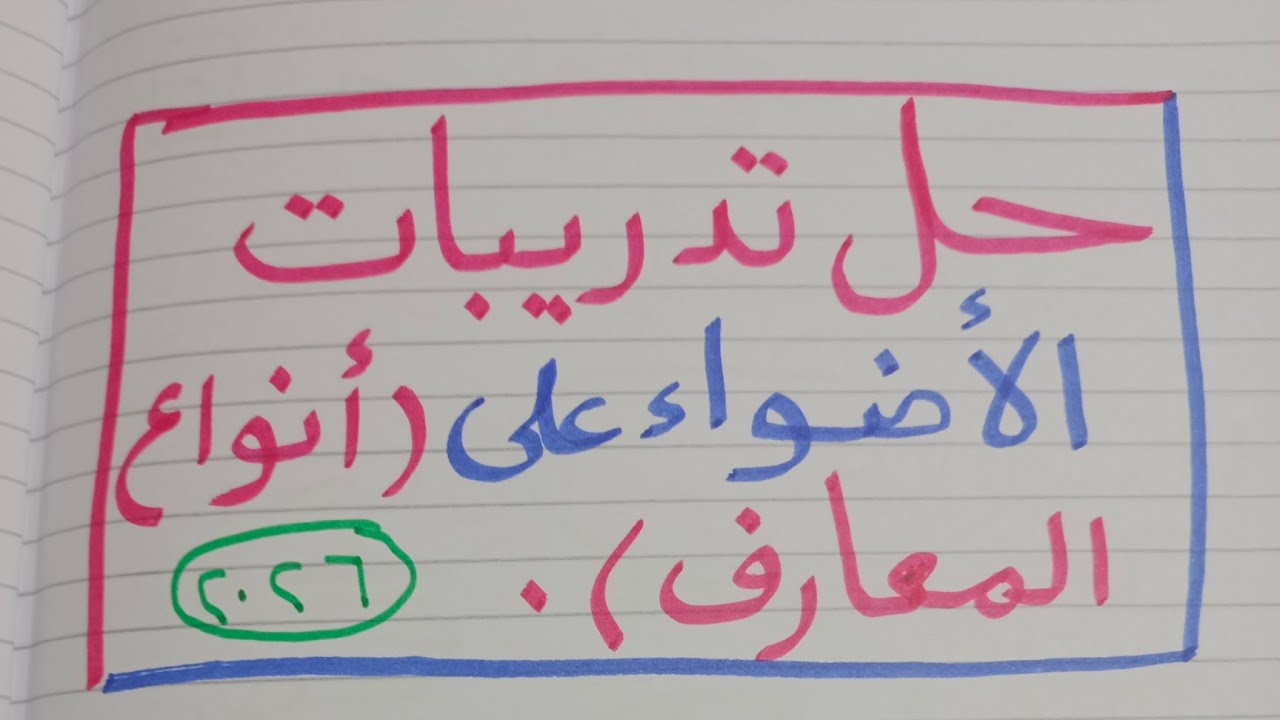 حل تدريبات
الأضواء على (أنواع
المعارف).
٢٠٢٦